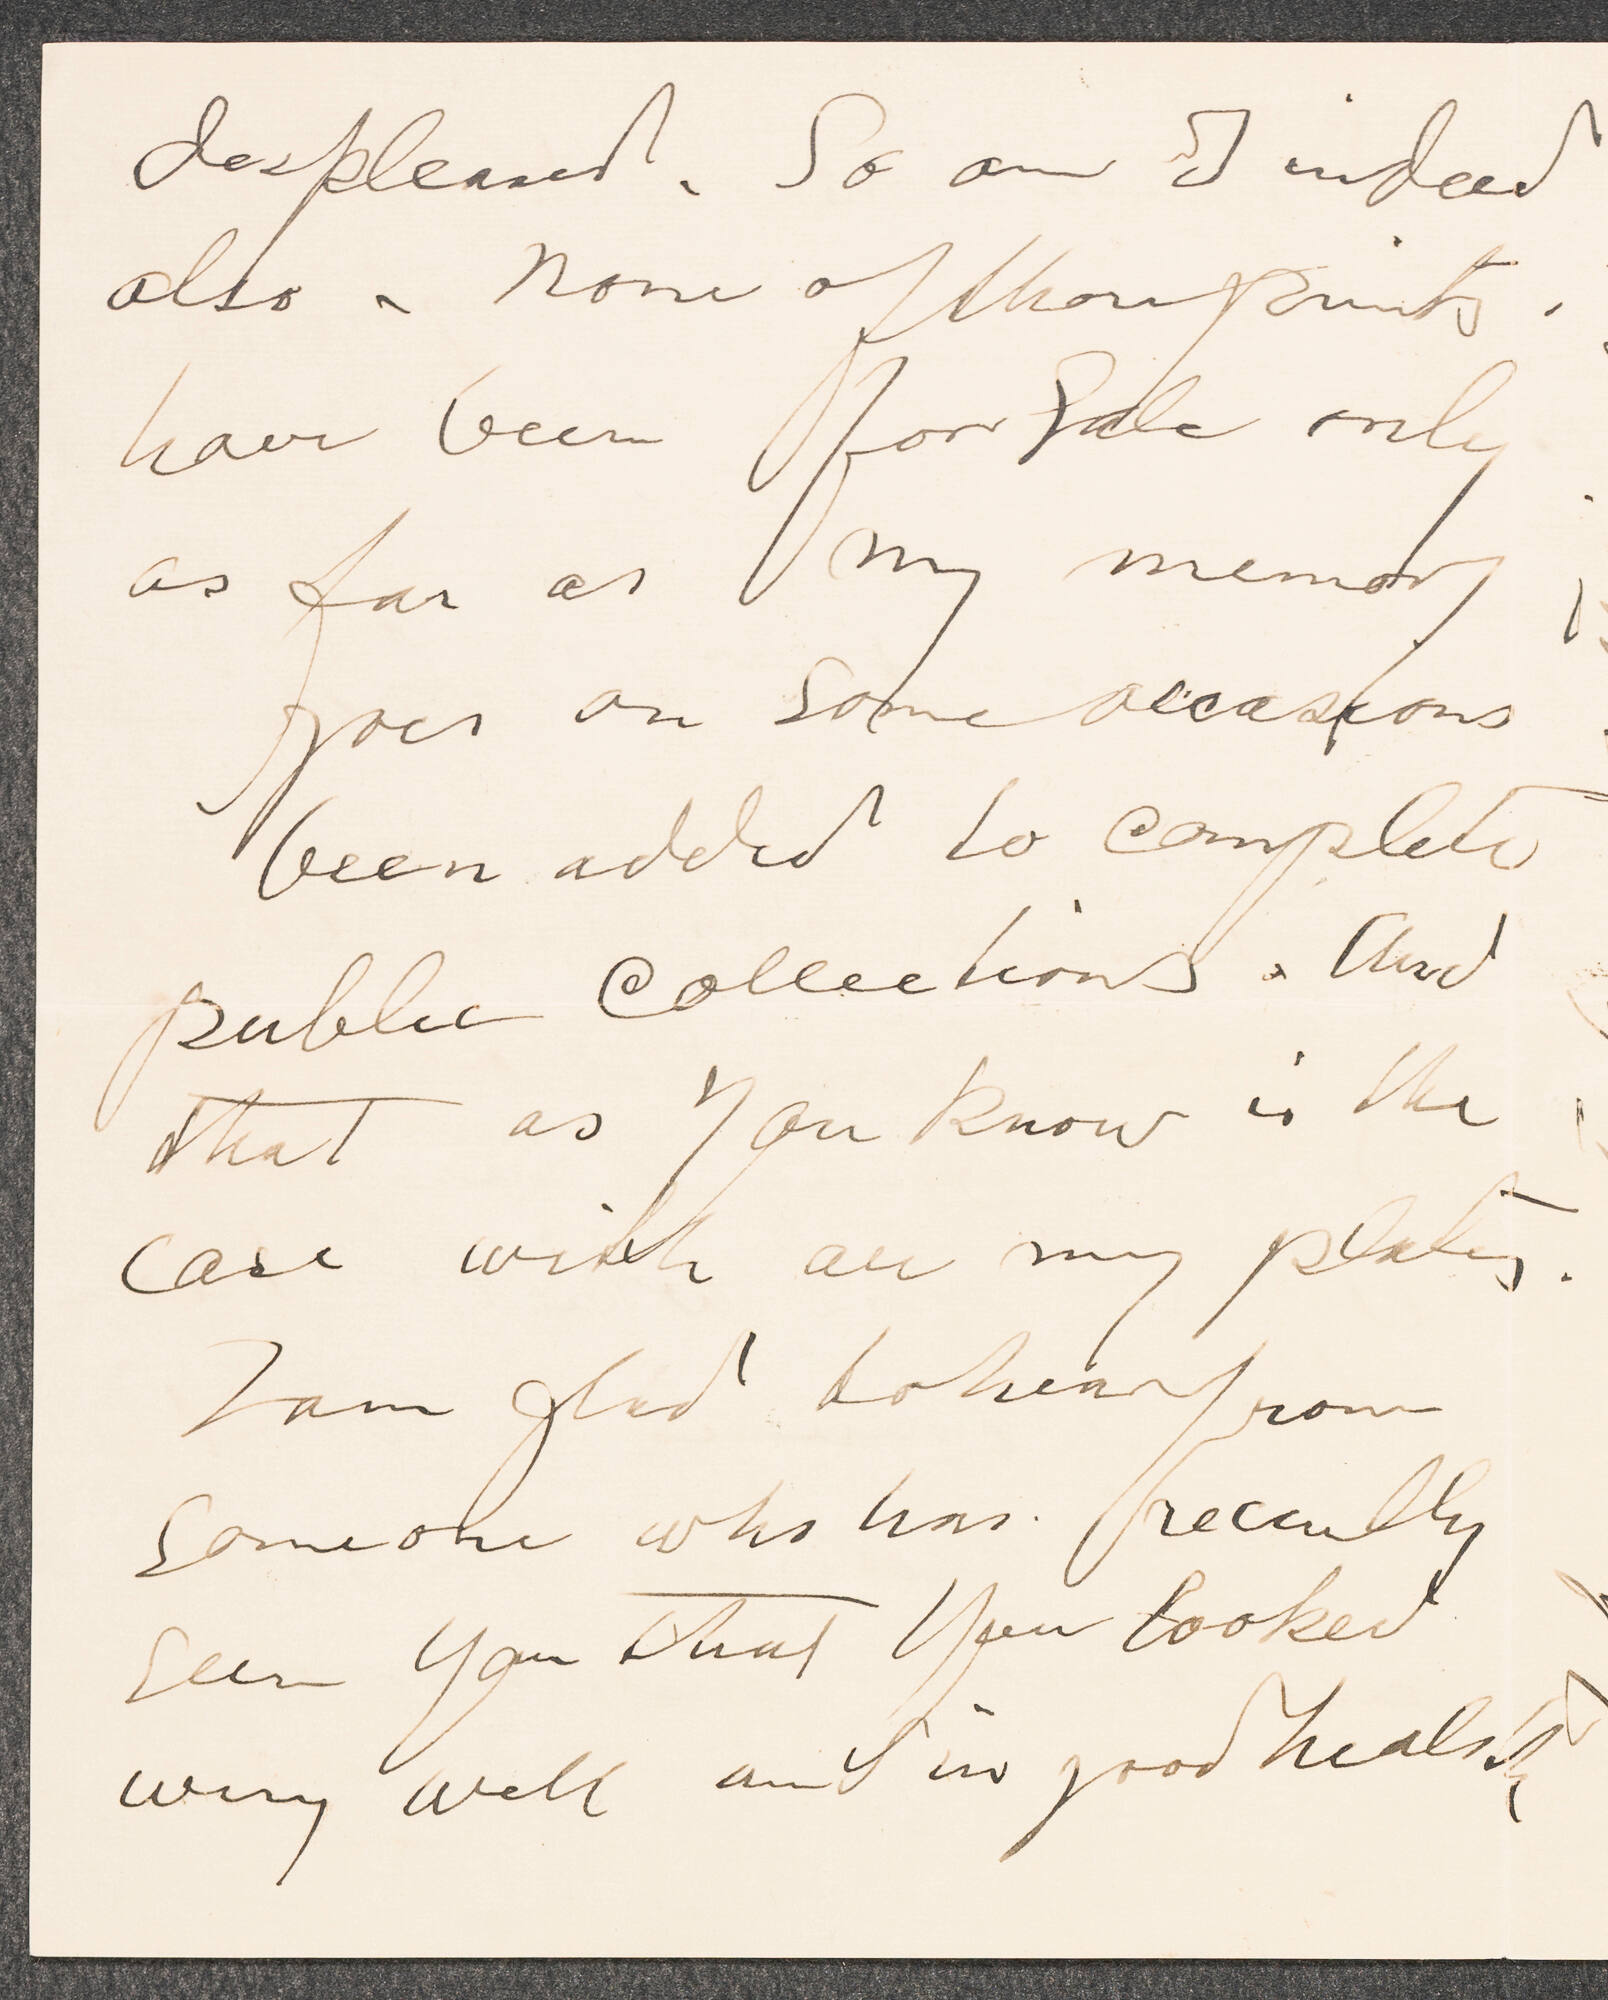 displeased. So am I indeed
also. None of these prints.
have been for Sale only
as far as my memory
goes on some occasions
been added to complete
public collections. And
that as you know is the
case with all my plates.
I am glad to hear from
someone who has. recently
seen you that you looked
very well and in good health